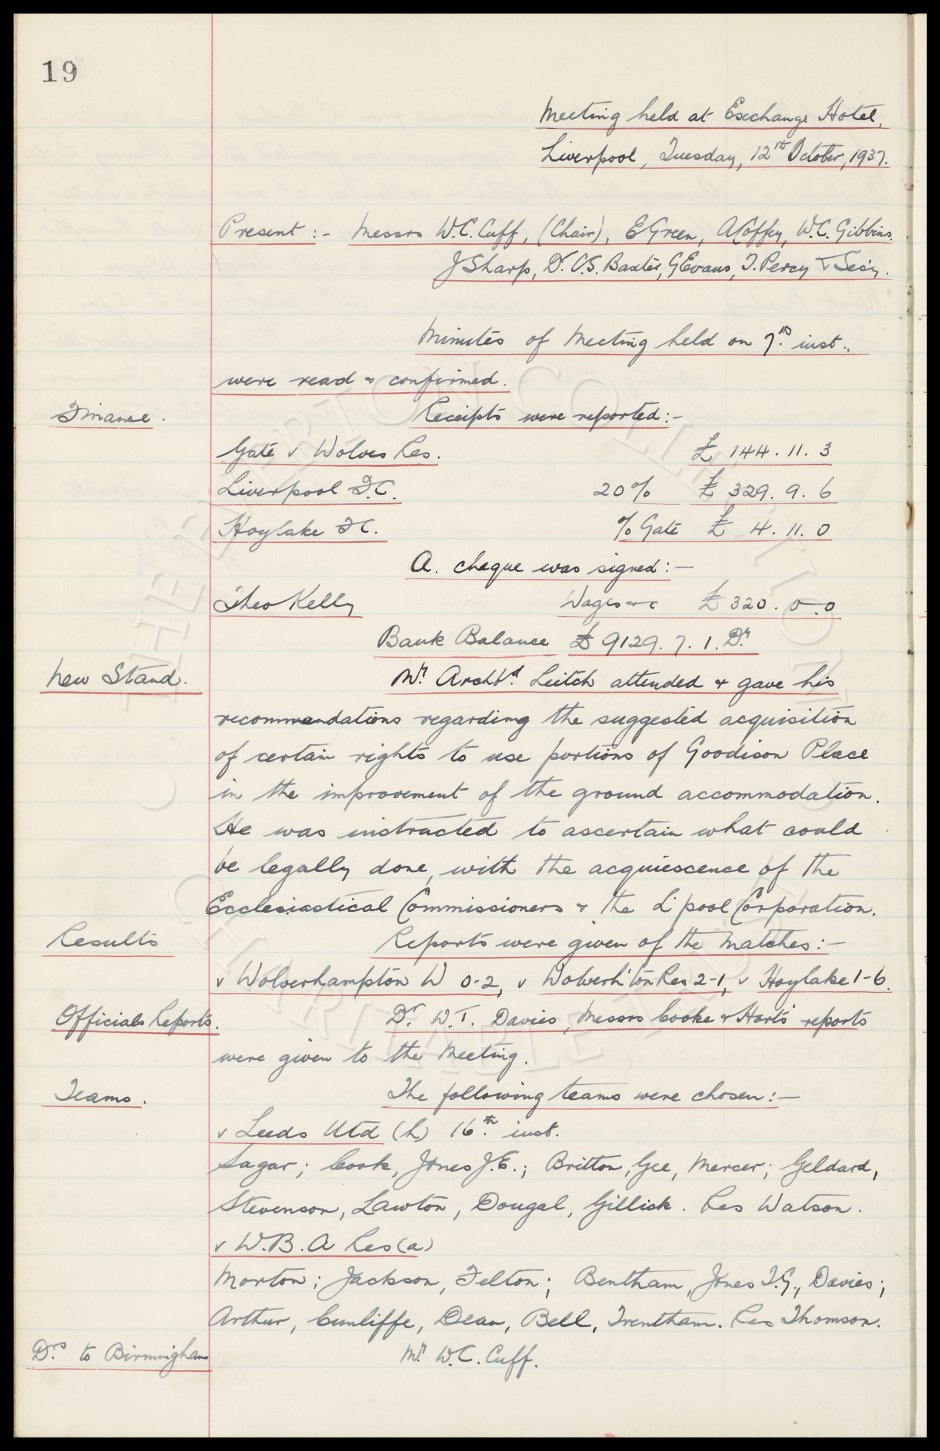 19
Meeting held at Exchange Hotel,
Liverpool, Tuesday, 12th October, 1937.
Present :- Messrs W.C. Cuff, (Chair), E Green, A Coffey, W.C. Gibbins,
J Sharp, Dr C.S. Baxter, G Evans, T. Percy & Secy.
Minutes of Meeting held on 7th inst.,
were read & confirmed.
Finance. Receipts were reported:-
Gate v Wolves Res. £ 144. 11. 3
Liverpool F.C. 20% £ 329. 9. 6
Hoylake F C. % Gate £ 4. 11. 0
A. cheque was signed:-
Theo Kelly Wages &c £ 320. 0. 0
Bank Balance £ 9129. 7. 1. Dr
New Stand. Mr. Archbd. Leitch attended & gave his
recommendations regarding the suggested acquisition
of certain rights to use portions of Goodison Place
in the improvement of the ground accommodation.
He was instructed to ascertain what could
be legally done, with the acquiescence of the
Ecclesiastical Commissioners & the L'pool Corporation.
Results Reports were given of the Matches:-
v Wolverhampton W 0-2, v Wolverh'ton Res 2-1, v Hoylake 1-6.
Officials Reports. Dr. W.T. Davies, Messrs Cooke & Harts reports
were given to the Meeting.
Teams. The following teams were chosen:-
v Leeds Utd (h) 16th. inst.
Sagar; Cook, Jones J.E.; Britton, Gee, Mercer; Geldard,
Stevenson, Lawton, Dougal, Gillick. Res Watson.
v W.B.A Res (a)
Morton; Jackson, Felton; Bentham, Jones T.G., Davies;
Arthur, Cunliffe, Dean, Bell, Trentham. Res Thomson.
Drs to Birmingham Mr W.C. Cuff.
THE EVERTON COLLECTION
CHARITABLE TRUST